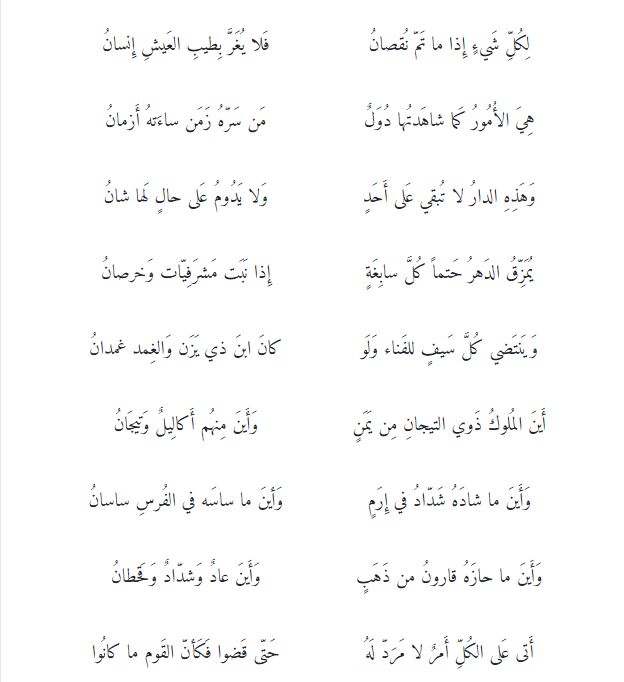 لِكُلِّ شَيءٍ إِذا ما تَمّ نُقصانُ فَلا يُغَرَّ بِطيبِ العَيشِ إِنسانُ
هِيَ الأُمُورُ كَما شاهَدتُها دُوَلٌ مَن سَرّهُ زَمَن ساءَتهُ أَزمانُ
وَهَذِهِ الدارُ لا تُبقي عَلى أَحَدٍ وَلا يَدُومُ عَلى حالٍ لَها شانُ
يُمَزِّقُ الدَهرُ حَتماً كُلَّ سابِغَةٍ إِذا نَبَت مَشرَفِيّات وَخرصانُ
وَيَنتَضي كُلَّ سَيفٍ للفَناء وَلَو كانَ ابنَ ذي يَزَن وَالغِمد غمدانُ
أَينَ المُلوكُ ذَوي التيجانِ مِن يَمَنٍ وَأَينَ مِنهُم أَكالِيلٌ وَتيجَانُ
وَأَينَ ما شادَهُ شَدّادُ في إِرَمٍ وَأينَ ما ساسَه في الفُرسِ ساسانُ
وَأَينَ ما حازَهُ قارونُ من ذَهَبٍ وَأَينَ عادٌ وَشدّادٌ وَقَحطانُ
أَتى عَلى الكُلِّ أَمرٌ لا مَرَدّ لَهُ حَتّى قَضوا فَكَأنّ القَوم ما كانُوا